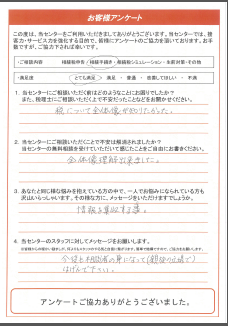 お客様アンケート
この度は、当センターをご利用いただきましてありがとうございます。当センターでは、接
客力・サービス力を強化する目的で、皆様にアンケートのご協力を頂いております。お手
数ですが、ご協力下されば幸いです。
・ご相談内容 相続税申告 / 相続手続き / 相続税シミュレーション・生前対策・その他
・満足度 とても満足 ・ 満足 ・ 普通 ・ 改善してほしい ・ 不満
1. 当センターにご相談いただく前はどのようなことにお困りでしたか?
また、税理士にご相談いただく上で不安だったことなどをお聞かせください。
税について全体像が知りたかった。
2. 当センターにご相談いただたことで不安は解消されましたか?
当センターの無料相談を受けていただいて感じたことをご自由にお書きください。
全体像理解出来ました。
3. あなたと同じ様な悩みを抱えている方の中で、一人でお悩みになられている方も
沢山いらっしゃいます。その様な方に、メッセージをいただけますでしょうか。
情報を集収する事。
4. 当センターのスタッフに対してメッセージをお願いします。
今後も相談者の身になって
はげんで下さい。
アンケートご協力ありがとうございました。